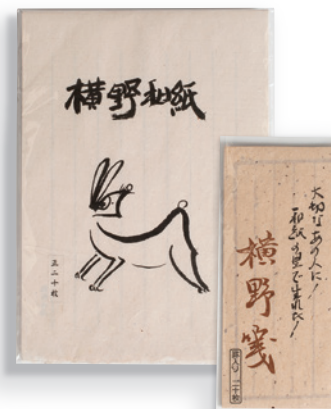 横野和紙
五二十枚
大切なあの人に!
和紙の里で生れた!
横野箋
二十枚